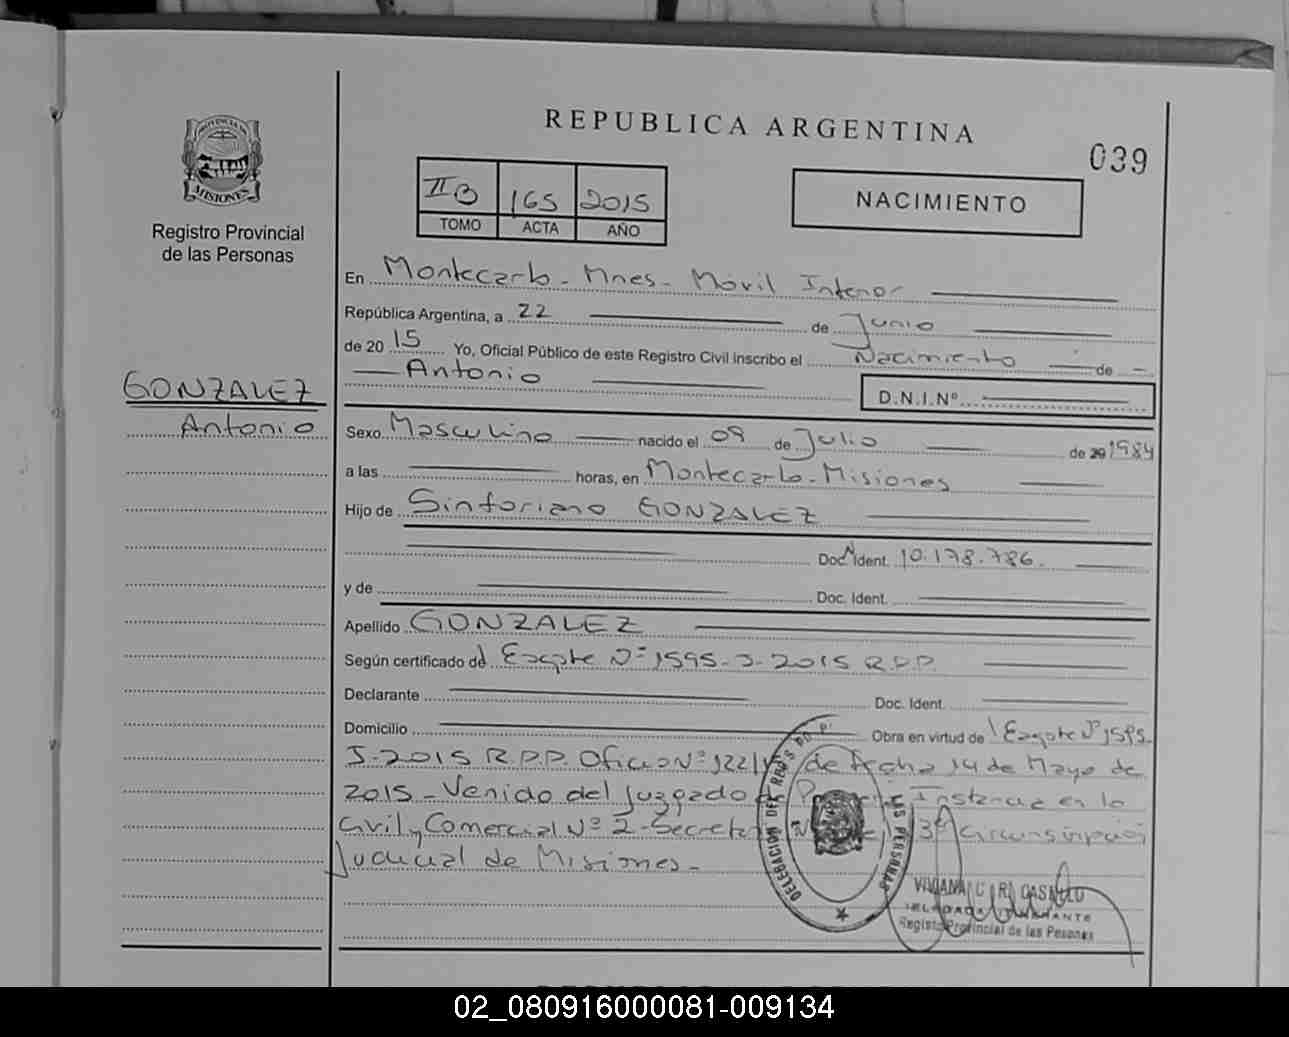 REPUBLICA ARGENTINA
039
PROVINCIA DE
MISIONES
Registro Provincial
de las Personas
II B 165 2015
TOMO ACTA AÑO
NACIMIENTO
En Montecarlo - Mnes - Móvil Interior
República Argentina, a 22 de Junio
de 20 15 Yo, Oficial Público de este Registro Civil inscribo el Nacimiento de
Antonio
D.N.I.Nº
GONZALEZ
Antonio
Sexo Masculino nacido el 09 de Julio de 1984
a las horas, en Montecarlo - Misiones
Hijo de Sinforiano GONZALEZ
Doc. Ident. 10.178.786.
y de Doc. Ident.
Apellido GONZALEZ
Según certificado de Expte Nº 1595-J-2015 R.P.P.
Declarante Doc. Ident.
Domicilio Obra en virtud de Expte Nº 1595
J-2015 R.P.P. Oficio Nº 122/ de fecha 14 de Mayo de
2015 - Venido del Juzgado de Primera Instancia en lo
Civil y Comercial Nº 2 - Secretaria 3º Circunscripción
Judicial de Misiones -
DELEGACION DEL REG. LAS PERSONAS
VIVIANA CASTILLO
Registro Provincial de las Personas
02_080916000081-009134